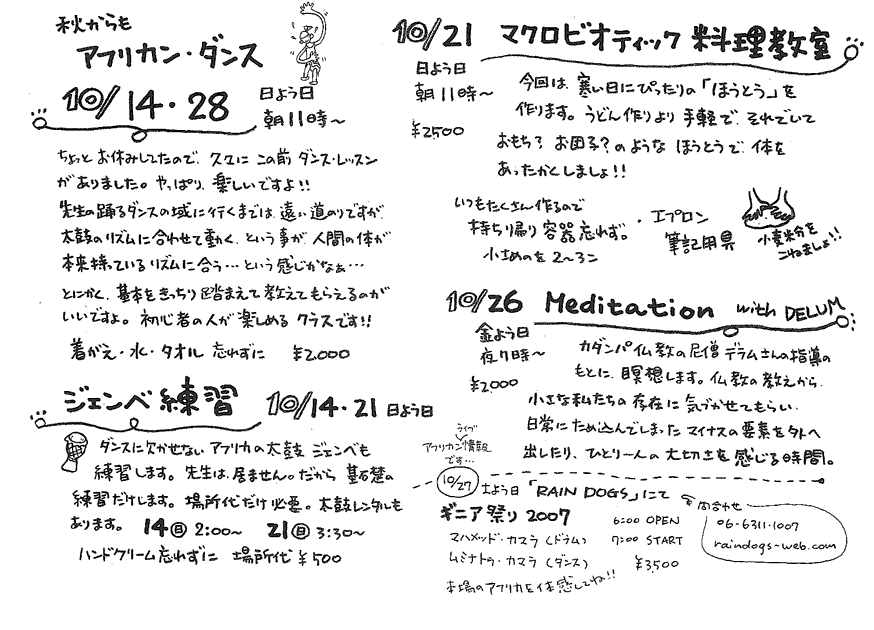 秋からも
アフリカン・ダンス
10/14・28 日よう日
朝11時〜
ちょっとお休みしてたので、久々にこの前ダンス・レッスン
がありました。やっぱり、楽しいですよ!!
先生の踊るダンスの域に行くまでは、遠い道のりですが、
太鼓のリズムに合わせて動く、という事が、人間の体が
本来持っているリズムに合う…という感じかなぁ…
とにかく、基本をきっちり踏まえて教えてもらえるのが
いいですよ。初心者の人が楽しめるクラスです!!
着がえ・水・タオル 忘れずに ¥2,000
ジェンベ練習 10/14・21 日よう日
ダンスに欠かせないアフリカの太鼓 ジェンベも
練習します。先生は、居ません。だから基石楚の
練習だけします。場所代だけ必要。太鼓レンタルも
あります。 14(日) 2:00〜 21(日) 3:30〜
ハンドクリーム忘れずに 場所代 ¥500
10/21 マクロビオティック 料理教室
日よう日
朝11時〜
¥2,500
今回は、寒い日にぴったりの「ほうとう」を
作ります。うどん作りより手軽で、それでいて
おもち?お団子?のような ほうとうで、体を
あったかくしましょ!!
いつもたくさん作るので
持ち帰り容器忘れず。
小さめのを2〜3コ
・エプロン
筆記用具
小麦粉を
こねましょ!!
10/26 Meditation with DELUM
金よう日
夜7時〜
¥2000
カダンパ仏教の尼僧デラムさんの指導の
もとに、瞑想します。仏教の教えから、
小さな私たちの存在に気づかせてもらい、
日常にため込んでしまったマイナスの要素を外へ
出したり、ひとり一人の大切さを感じる時間。
ライブ
アフリカン情報
です…
10/27 土よう日「RAIN DOGS」にて
ギニア祭り 2007
6:00 OPEN
マハメッド・カマラ(ドラム) 7:00 START
ムミナトゥ・カマラ(ダンス) ¥3,500
本場のアフリカを体感してね!!
問合わせ
06-6311-1007
raindogs-web.com